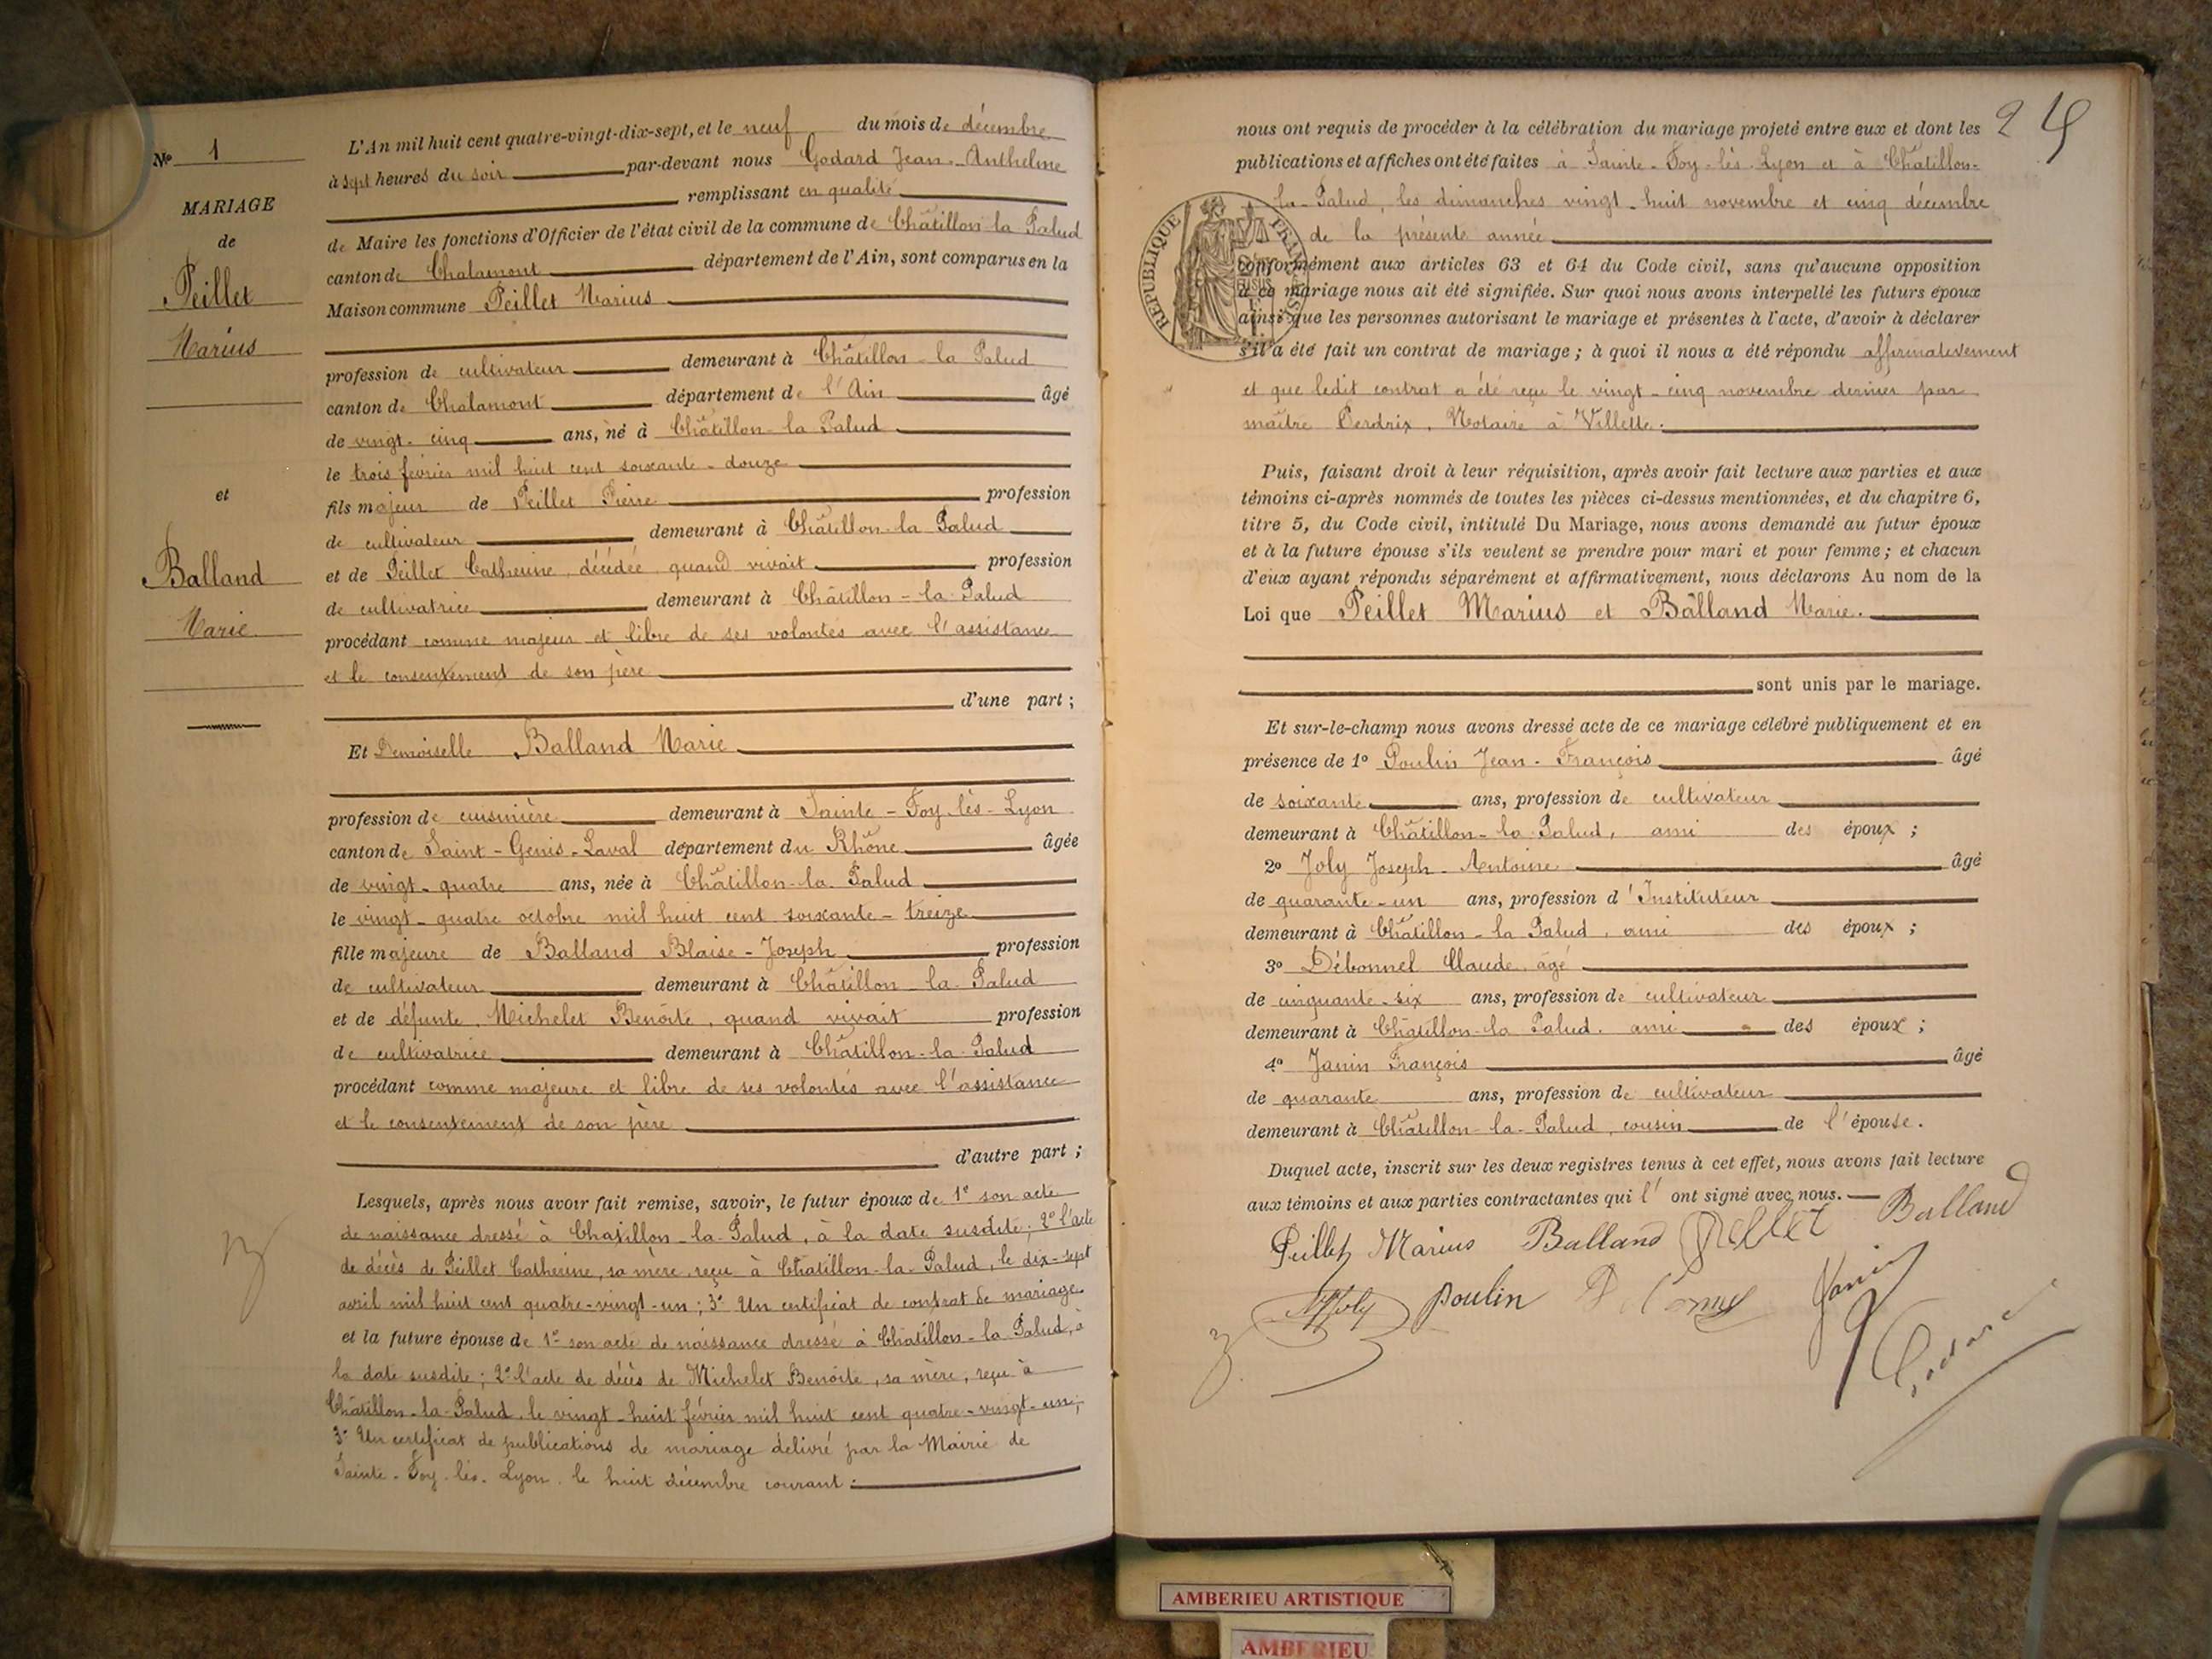 N° 1
MARIAGE
de
Peillet
Marius
et
Balland
Marie
L'An mil huit cent quatre-vingt-dix-sept, et le neuf du mois de décembre
à sept heures du soir par-devant nous Godard Jean-Anthelme
remplissant en qualité
de Maire les fonctions d'Officier de l'état civil de la commune de Châtillon-la-Palud
canton de Chalamont département de l'Ain, sont comparus en la
Maison commune Peillet Marius
profession de cultivateur demeurant à Châtillon-la-Palud
canton de Chalamont département de l'Ain âgé
de vingt-cinq ans, né à Châtillon-la-Palud
le trois février mil huit cent soixante-douze
fils majeur de Peillet Pierre profession
de cultivateur demeurant à Châtillon-la-Palud
et de Peillet Catherine, décédée, quand vivait profession
de cultivatrice demeurant à Châtillon-la-Palud
procédant comme majeur et libre de ses volontés avec l'assistance
et le consentement de son père
d'une part ;
Et Demoiselle Balland Marie
profession de cuisinière demeurant à Sainte-Foy-lès-Lyon
canton de Saint-Genis-Laval département du Rhône âgée
de vingt-quatre ans, née à Châtillon-la-Palud
le vingt-quatre octobre mil huit cent soixante-treize
fille majeure de Balland Blaise-Joseph profession
de cultivateur demeurant à Châtillon-la-Palud
et de défunte, Michelet Benoîte, quand vivait profession
de cultivatrice demeurant à Châtillon-la-Palud
procédant comme majeure et libre de ses volontés avec l'assistance
et le consentement de son père
d'autre part ;
Lesquels, après nous avoir fait remise, savoir, le futur époux de 1° son acte
de naissance dressé à Chatillon-la-Palud, à la date susdite ; 2° l'acte
de décès de Peillet Catherine, sa mère, reçu à Châtillon-la-Palud, le dix-sept
avril mil huit cent quatre-vingt-un ; 3° Un certificat de contrat de mariage
et la future épouse de 1° son acte de naissance dressé à Châtillon-la-Palud, à
la date susdite ; 2° l'acte de décès de Michelet Benoîte, sa mère, reçu à
Châtillon-la-Palud, le vingt-huit février mil huit cent quatre-vingt-un ;
3° Un certificat de publications de mariage délivré par la Mairie de
Sainte-Foy-lès-Lyon, le huit décembre courant :
nous ont requis de procéder à la célébration du mariage projeté entre eux et dont les
publications et affiches ont été faites à Sainte-Foy-lès-Lyon et à Châtillon-
la-Palud, les dimanches vingt-huit novembre et cinq décembre
de la présente année
RÉPUBLIQUE FRANÇAISE
conformément aux articles 63 et 64 du Code civil, sans qu'aucune opposition
à ce mariage nous ait été signifiée. Sur quoi nous avons interpellé les futurs époux
ainsi que les personnes autorisant le mariage et présentes à l'acte, d'avoir à déclarer
s'il a été fait un contrat de mariage ; à quoi il nous a été répondu affirmativement
et que ledit contrat a été reçu le vingt-cinq novembre dernier par
maître Perdrix, Notaire à Villette.
Puis, faisant droit à leur réquisition, après avoir fait lecture aux parties et aux
témoins ci-après nommés de toutes les pièces ci-dessus mentionnées, et du chapitre 6,
titre 5, du Code civil, intitulé Du Mariage, nous avons demandé au futur époux
et à la future épouse s'ils veulent se prendre pour mari et pour femme ; et chacun
d'eux ayant répondu séparément et affirmativement, nous déclarons Au nom de la
Loi que Peillet Marius et Balland Marie.
sont unis par le mariage.
Et sur-le-champ nous avons dressé acte de ce mariage célébré publiquement et en
présence de 1° Poulin Jean-François âgé
de soixante ans, profession de cultivateur
demeurant à Châtillon-la-Palud, ami des époux ;
2° Joly Joseph-Antoine âgé
de quarante-un ans, profession d'Instituteur
demeurant à Châtillon-la-Palud, ami des époux ;
3° Débonnel Claude, âgé
de cinquante-six ans, profession de cultivateur
demeurant à Châtillon-la-Palud, ami des époux ;
4° Janin François âgé
de quarante ans, profession de cultivateur
demeurant à Châtillon-la-Palud, cousin de l'épouse.
Duquel acte, inscrit sur les deux registres tenus à cet effet, nous avons fait lecture
aux témoins et aux parties contractantes qui l'ont signé avec nous.
Peillet Marius Balland Peillet Balland
Joly Poulin Janin
Godard
AMBERIEU ARTISTIQUE
AMBERIEU